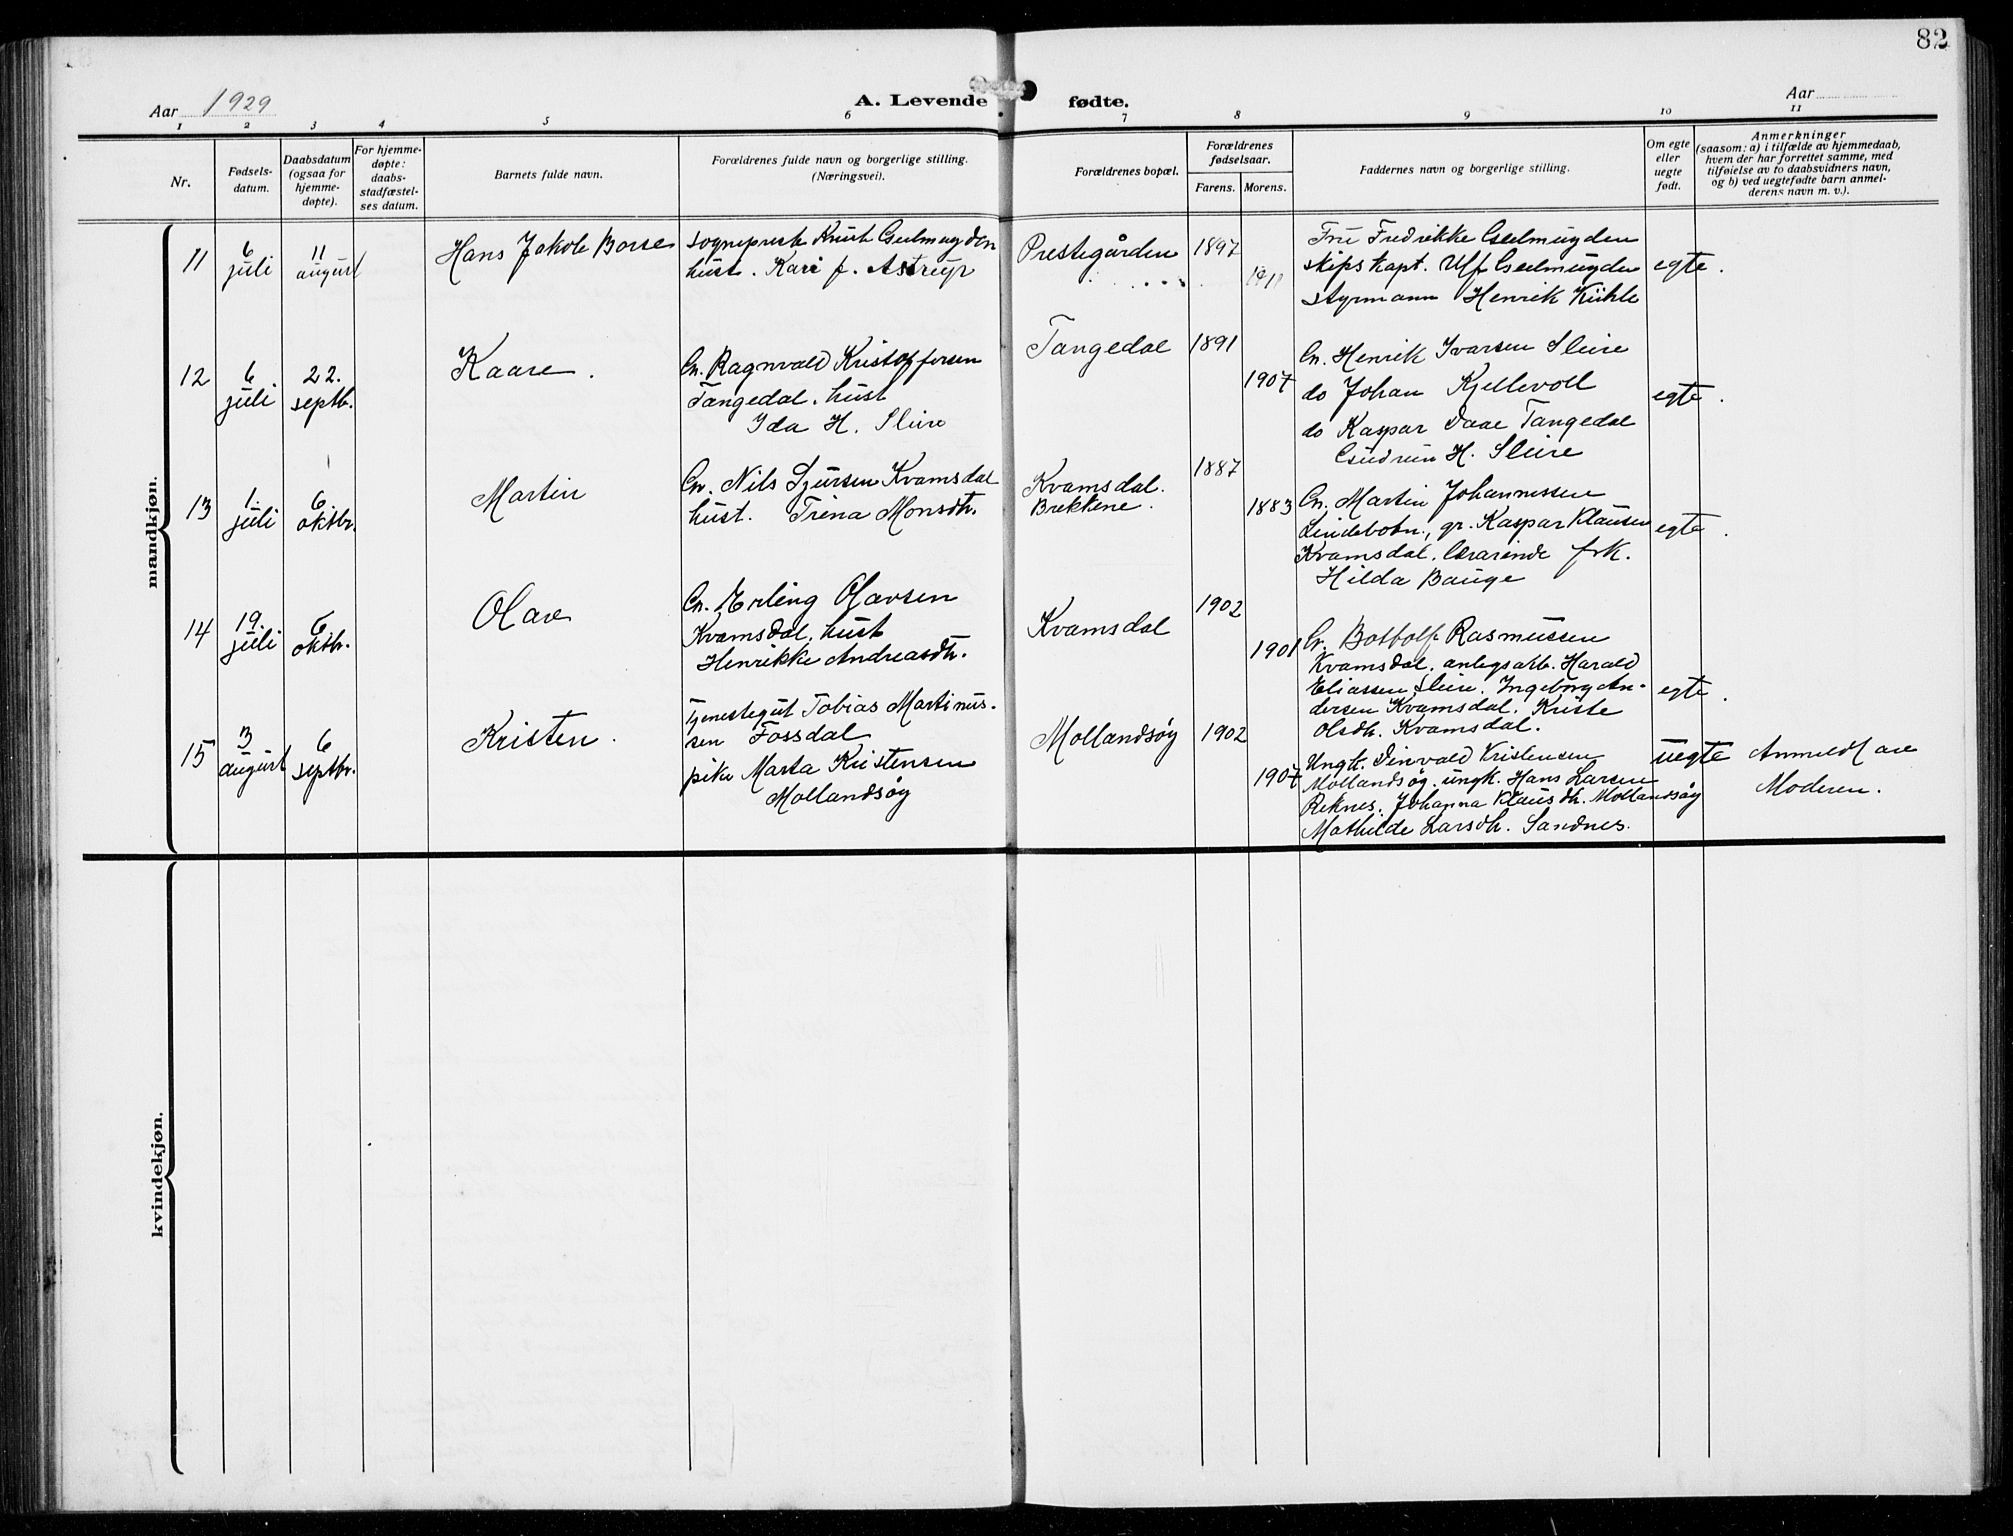 82
Aar 1929
A. Levende fødte.
Aar
1 2 3 4 5 6 7 8 9 10 11
Nr.
Fødsels-
datum.
Daabsdatum
(ogsaa for
hjemme-
døpte).
For hjemme-
døpte:
daabs-
stadfæstel-
ses datum.
Barnets fulde navn.
Forældrenes fulde navn og borgerlige stilling.
(Næringsvei).
Forældrenes bopæl.
Forældrenes
fødselsaar.
Farens. Morens.
Faddernes navn og borgerlige stilling.
Om egte
eller
uegte
født.
Anmerkninger
(saasom: a) i tilfælde av hjemmedaab,
hvem der har forrettet samme, med
tilføielse av to daabsvidners navn,
og b) ved uegtefødte barn anmel-
derens navn m. v.).
mandkjøn.
11
6
juli
11
august
Hans Jakob Borse
sogneprest Knut Geelmuyden
hust. Kari f. Astrup
Prestegården
1897
Fru Fredrikke Geelmuyden
skipskapt. Ulf Geelmuyden
styrmann Henrik Kühle
egte.
12
6
juli
22.
septb.
Kaare.
Gr. Ragnvald Kristoffersen
Tangedal. hust
Ida H. Sleire
Tangedal
1891
1907
Gr. Henrik Ivarsen Sleire
do Johan Kjellevoll
do Kaspar Daae Tangedal
Gudrun H. Sleire
egte.
13
1.
juli
6
oktbr.
Martin
Gr. Nils Sjursen Kvamsdal
hust. Trina Monsdtr.
Kvamsdal.
Brekkene.
1887
1883
Gr. Martin Johannessen
Lindebotn, gr. Kaspar Klausen
Kvamsdal. lærarinde frk.
Hilda Bauge
egte.
14
19.
juli
6
oktbr.
Olav
Gr. Erling Olavsen
Kvamsdal, hust
Henrikke Andreasdtr.
Kvamsdal
1902
1901
Gr. Botolf Rasmussen
Kvamsdal. anlegsarb. Harald
Eliassen Sleire. Ingeborg An-
dersen Kvamsdal. Kriste
Olsdtr. Kvamsdal.
egte.
15
3
august
6
septbr.
Kristen.
Tjenestegut Tobias Martinus-
sen Fossdal
pike Marta Kristensen
Mollandsøy
Mollandsøy
1902
1907
Ungk. Kristensen
Mollandsøy. ungk. Hans Larsen
Reknes. Johanna Klausdtr. Mollandsøy
Mathilde Larsdtr. Sandnes.
uegte
Anmeldt av
Moderen.
kvindekjøn.